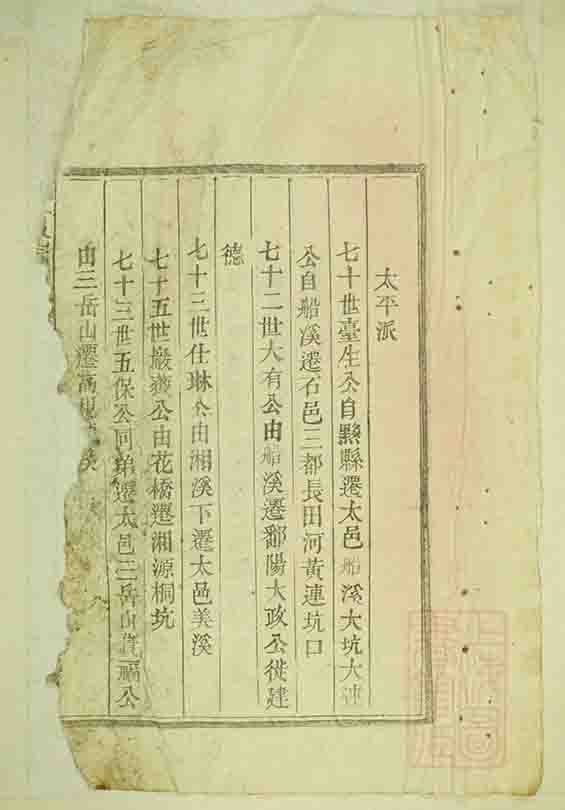 太平派
七十世臺生公自黟縣遷太邑船溪大坑大連
公自船溪遷石邑三都長田河黃連坑口
七十二世大有公由船溪遷鄱陽大政公徙建
德
七十三世仕琳公由湘溪下遷太邑美溪
七十五世巖公由花橋遷湘源桐坑
七十三世五保公同弟遷太邑三岳山福公
由三岳山遷溪
上海圖書館藏